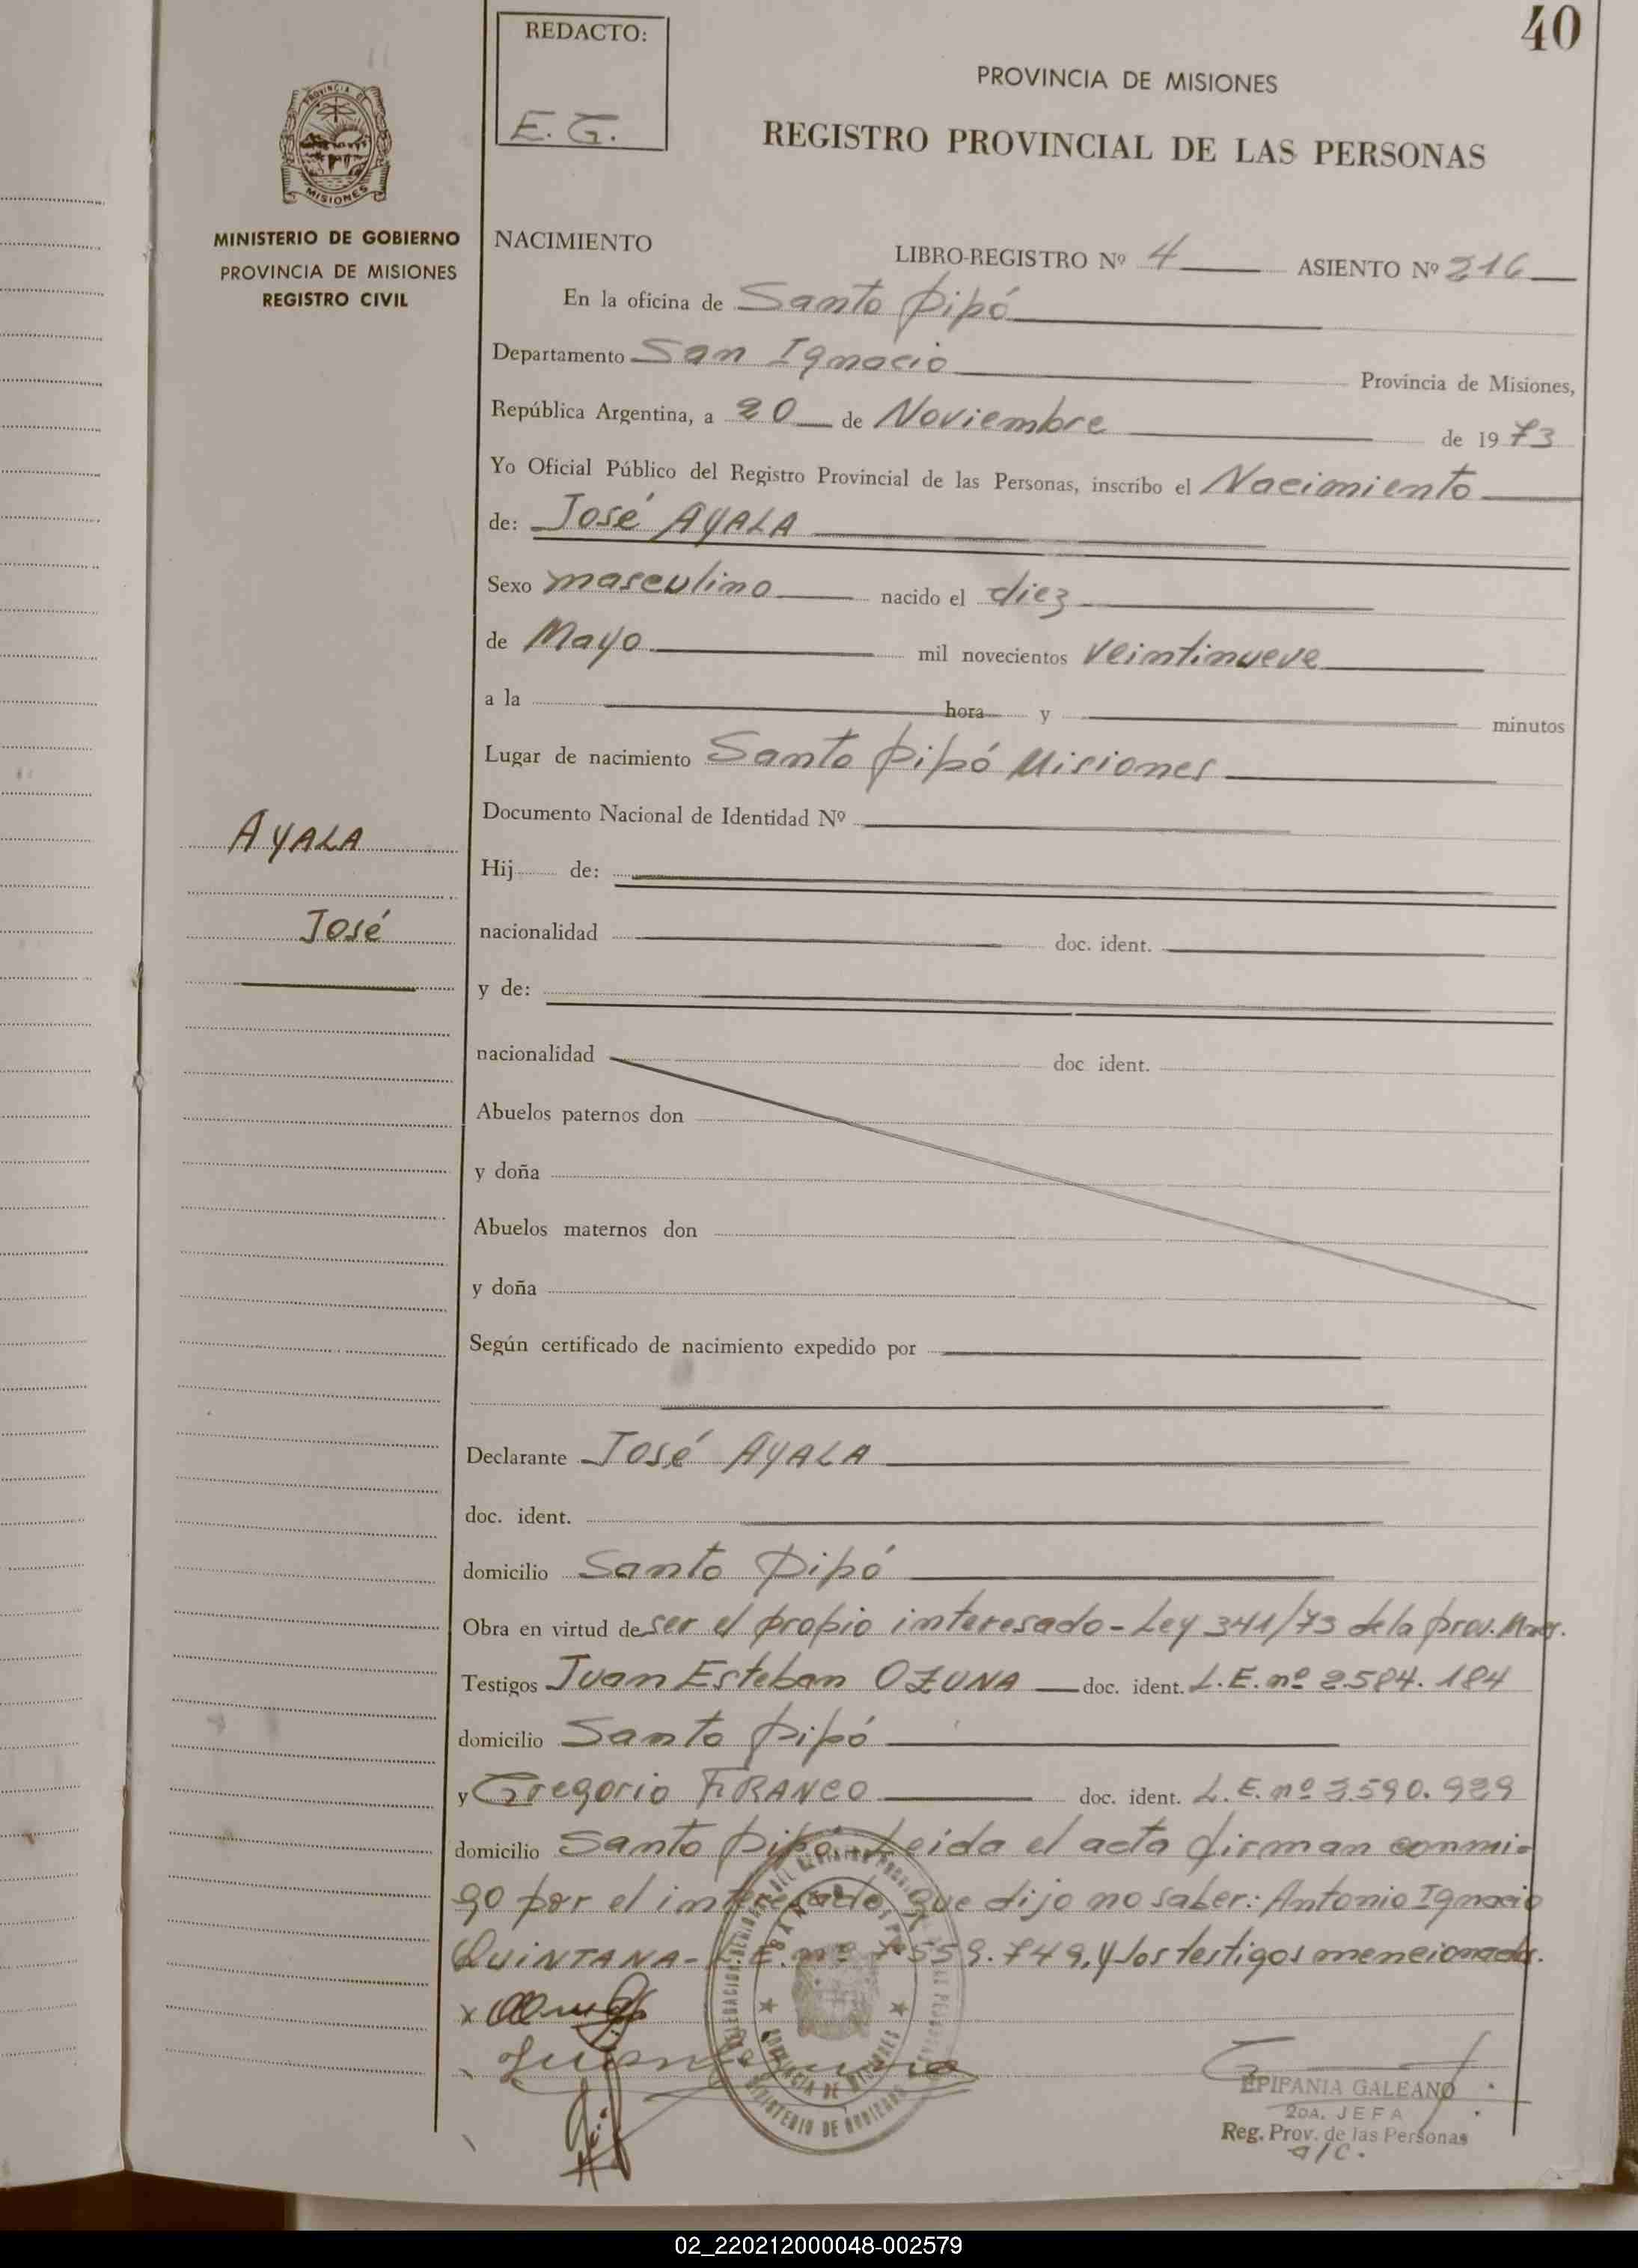 40
REDACTO:
E. G.
PROVINCIA DE MISIONES
REGISTRO PROVINCIAL DE LAS PERSONAS
PROVINCIA DE
MISIONES
MINISTERIO DE GOBIERNO
PROVINCIA DE MISIONES
REGISTRO CIVIL
NACIMIENTO LIBRO-REGISTRO Nº 4 ASIENTO Nº 216
En la oficina de Santo Pipó
Departamento San Ignacio Provincia de Misiones,
República Argentina, a 20 de Noviembre de 1973
Yo Oficial Público del Registro Provincial de las Personas, inscribo el Nacimiento
de: José AYALA
Sexo masculino nacido el diez
de Mayo mil novecientos veintinueve
a la hora y minutos
Lugar de nacimiento Santo Pipó Misiones
Documento Nacional de Identidad Nº
AYALA
Hij de:
José
nacionalidad doc. ident.
y de:
nacionalidad doc ident.
Abuelos paternos don
y doña
Abuelos maternos don
y doña
Según certificado de nacimiento expedido por
Declarante José AYALA
doc. ident.
domicilio Santo Pipó
Obra en virtud de ser el propio interesado - Ley 341/73 de la prov.
Testigos Juan Esteban OZUNA doc. ident. L.E. nº 2.584.184
domicilio Santo Pipó
y Gregorio FRANCO doc. ident. L.E. nº 3.590.929
domicilio Santo Pipó. Leida el acta firman conmi-
go por el interesado que dijo no saber: Antonio Ignacio
QUINTANA - L.E. nº 7.559.749, y los testigos mencionados.
x
EPIFANIA GALEANO
2DA. JEFA
Reg. Prov. de las Personas
a/c.
PROVINCIA DE MISIONES
MINISTERIO DE GOBIERNO
02_220212000048-002579